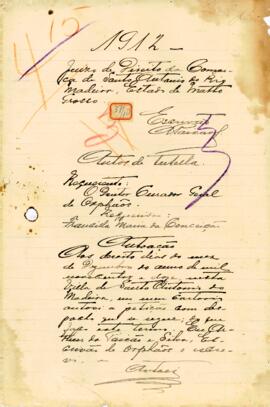 1912 —
Juizo de Direito da Comar-
ca de Santo Antonio do Rio
Madeira, Estado de Matto
Grosso
Escrivão
Autos de tutella.
Requerente:
O Doutor Curador Geral
de Orphãos.
Maria da Conceição
Autuação
Aos dezoito dias do mez
de Dezembro do anno de mil
novecentos e doze nesta
Villa de Santo Antonio do
Madeira, em meu cartorio
autoei a petição com des-
pacho que se segue; do que
faço este termo. Eu,
e Silva, Es-
crivão de Orphãos o escre-
vi.